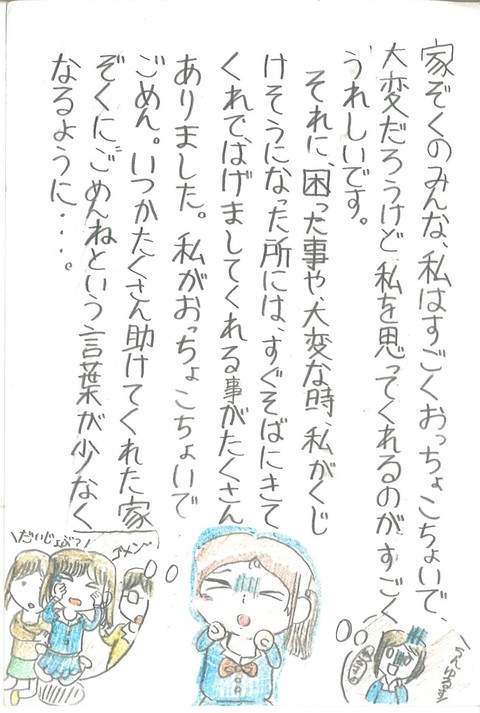 家ぞくのみんな、私はすごくおっちょこちょいで、
大変だろうけど私を思ってくれるのがすごく
うれしいです。
それに、困った事や、大変な時、私がくじ
けそうになった所には、すぐそばにきて
くれてはげましてくれる事がたくさん
ありました。私がおっちょこちょいで
ごめん。いつかたくさん助けてくれた家
ぞくに"ごめんねという言葉が少なく
なるように・・・。
だいじょぶ?
ゴメン〜